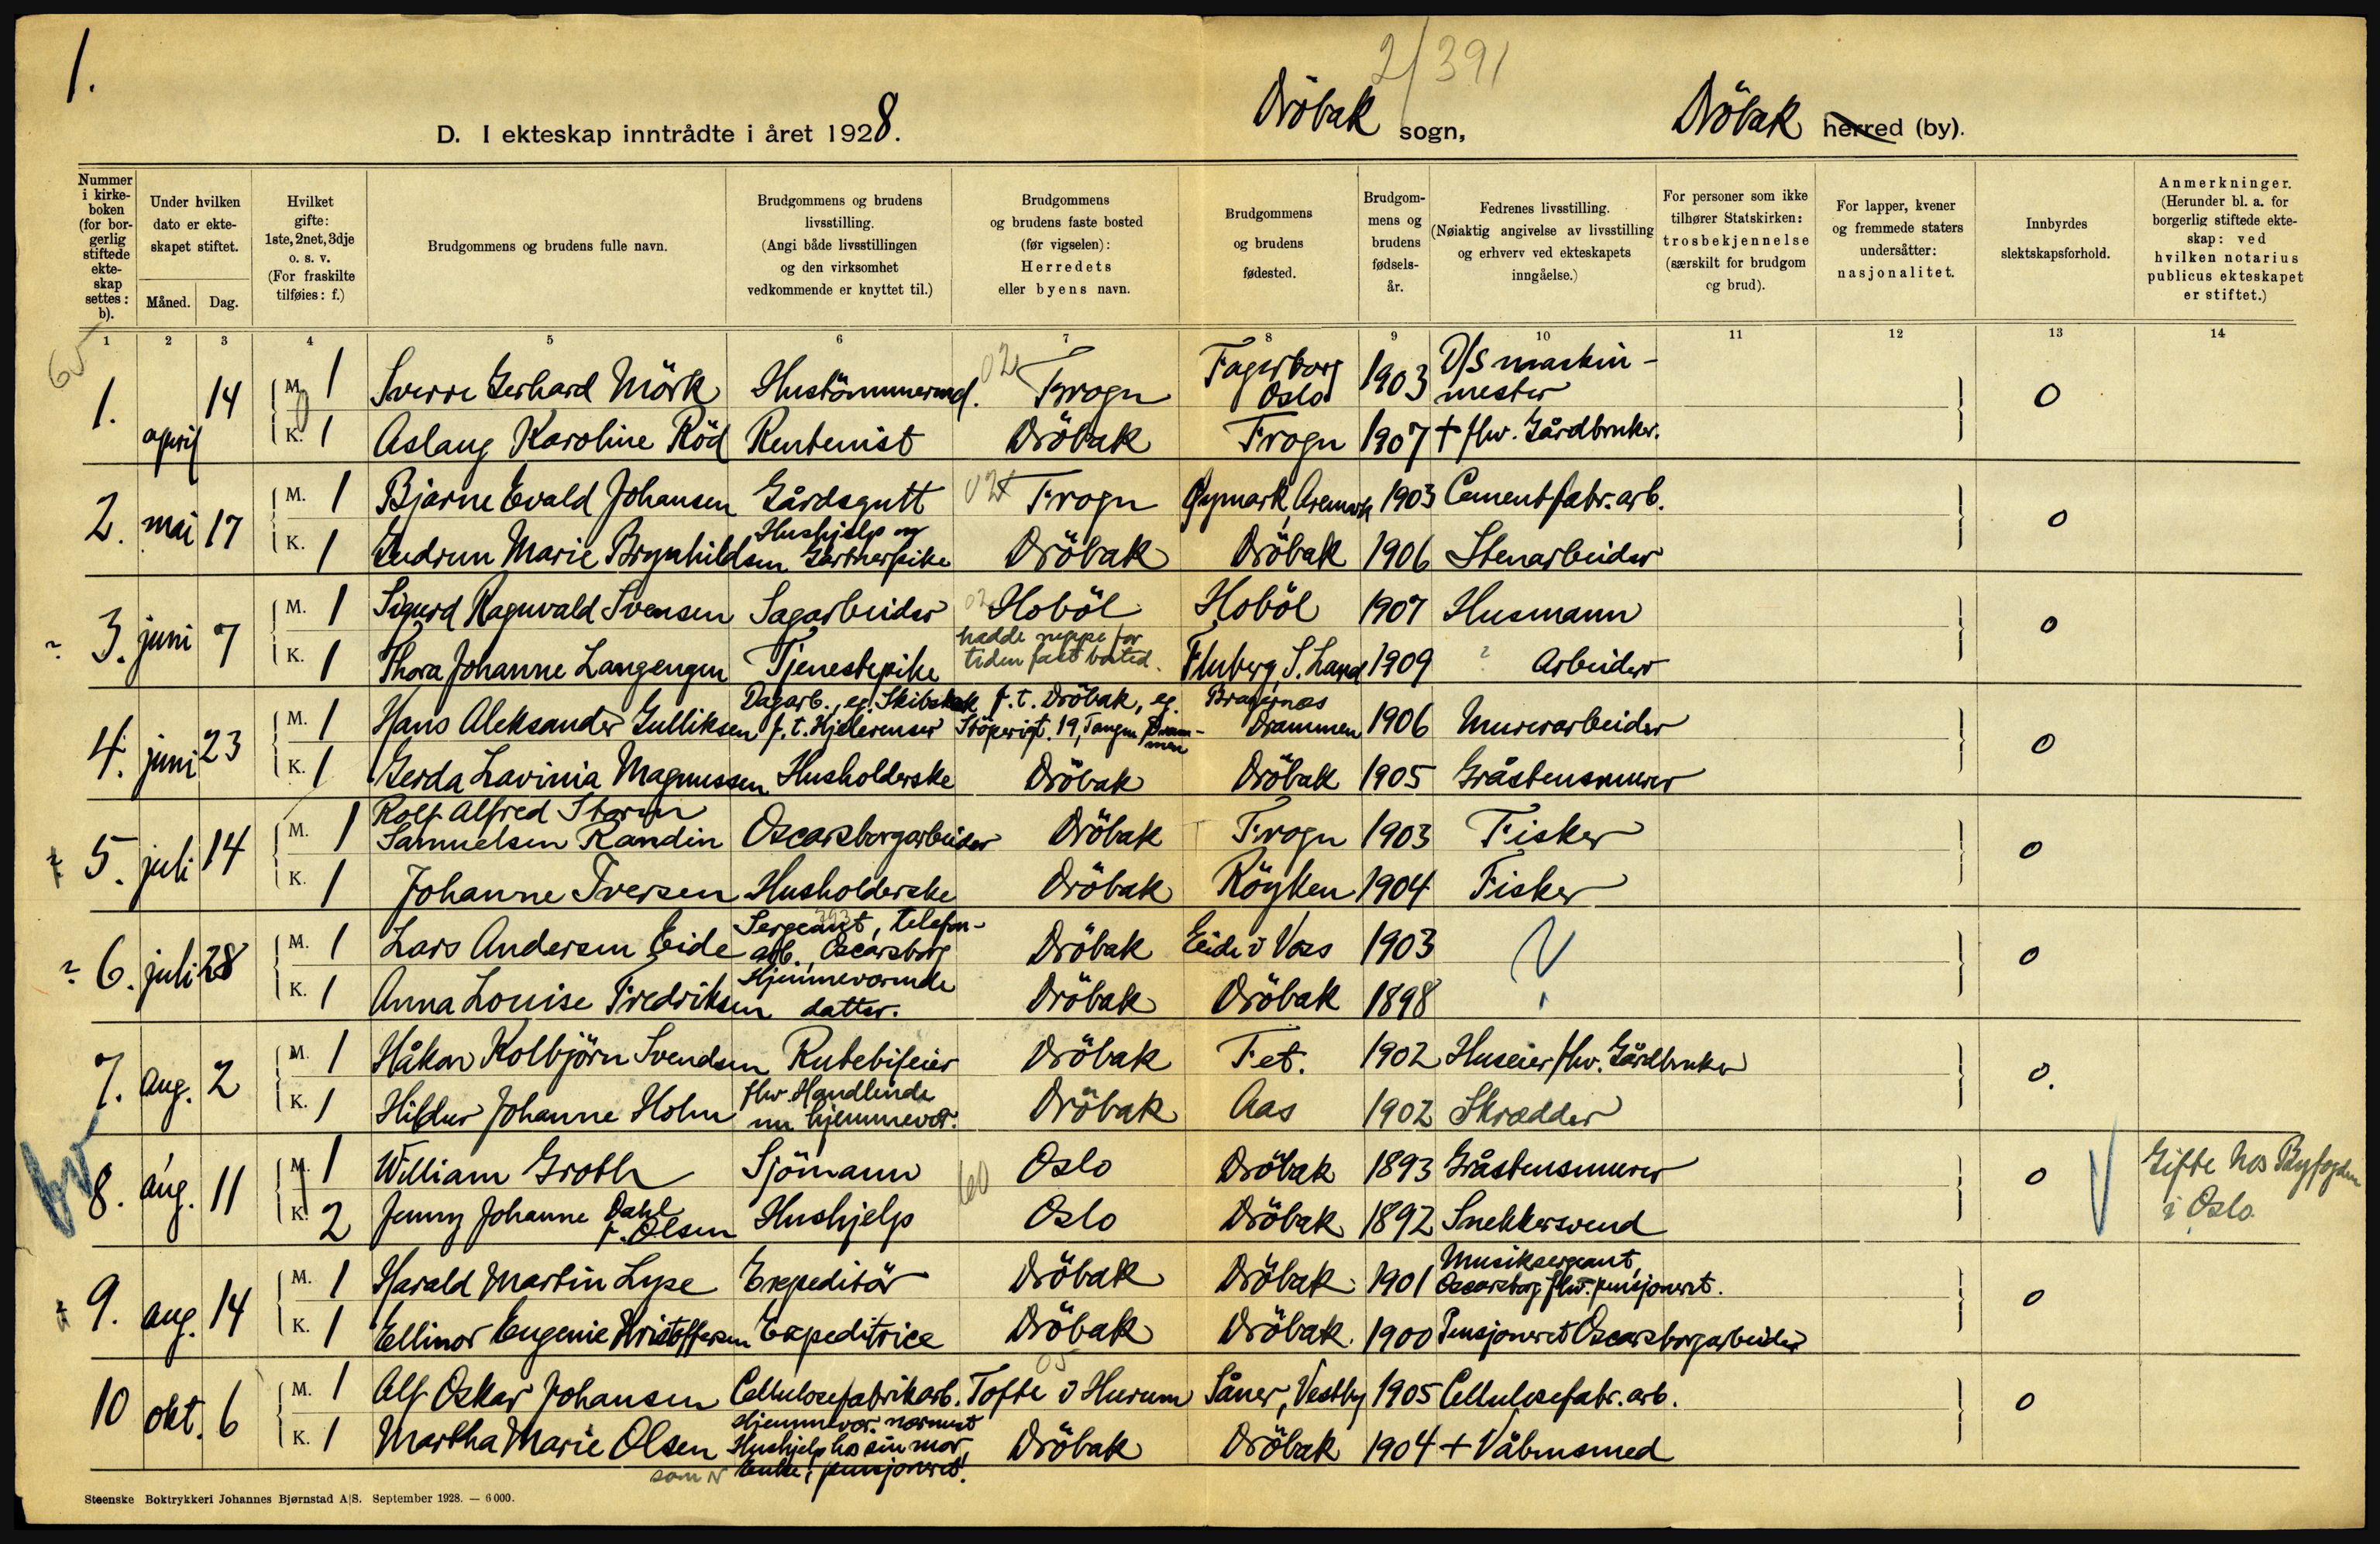 1.
2/391
D. I ekteskap inntrådte i året 1928. Dröbak sogn, Dröbak herred (by).
Nummer i kirkeboken (for borgerlig stiftede ekteskap settes: b).
Under hvilken dato er ekteskapet stiftet.
Måned. Dag.
Hvilket gifte: 1ste, 2net, 3dje o. s. v. (For fraskilte tilføies: f.)
Brudgommens og brudens fulle navn.
Brudgommens og brudens livsstilling. (Angi både livsstillingen og den virksomhet vedkommende er knyttet til.)
Brudgommens og brudens faste bosted (før vigselen): Herredets eller byens navn.
Brudgommens og brudens fødested.
Brudgommens og brudens fødselsår.
Fedrenes livsstilling. (Nøiaktig angivelse av livsstilling og erhverv ved ekteskapets inngåelse.)
For personer som ikke tilhører Statskirken: trosbekjennelse (særskilt for brudgom og brud).
For lapper, kvener og fremmede staters undersåtter: nasjonalitet.
Innbyrdes slektskapsforhold.
Anmerkninger. (Herunder bl. a. for borgerlig stiftede ekteskap: ved hvilken notarius publicus ekteskapet er stiftet.)
1 2 3 4 5 6 7 8 9 10 11 12 13 14
1. april 14 M. 1 Sverre Gerhard Mörk Hustömmermd. 02 Frogn Fagerborg Oslo 1903 D/S maskinmester 0
K. 1 Aslaug Karoline Röd Rentenist Dröbak Frogn 1907 + fhv. Gårdbruker.
2. mai 17 M. 1 Bjarne Evald Johansen Gårdsgutt 02 Frogn Øymark, Aremark 1903 Cementfabr. arb. 0
K. 1 Gudrun Marie Brynhildsen Hushjelp og Gartnerpike Dröbak Dröbak 1906 Stenarbeider
3. juni 7 M. 1 Sigurd Ragnvald Svensen Sagarbeider 02 Hoböl Hoböl 1907 Husmann 0
K. 1 Thora Johanne Langengen Tjenestepike hadde neppe for tiden fast bosted. Fluberg, S. Land 1909 ? Arbeider
4. juni 23 M. 1 Hans Aleksander Gulliksen Dagarb., eg. Skibskok f. t. Hjelerenser f. t. Dröbak, eg. Störperigt. 19, Tangen Drammen Bragernæs Drammen 1906 Murerarbeider 0
K. 1 Gerda Lavinia Magnussen Husholderske Dröbak Dröbak 1905 Gråstensmurer
5. juli 14 M. 1 Rolf Alfred Storm Samuelsen Randin Oscarsborgarbeider Dröbak Frogn 1903 Fisker 0
K. 1 Johanne Iversen Husholderske Dröbak Röyken 1904 Fisker
6. juli 28 M. 1 Lars Andersen Eide Sergeant, telefonarb., Oscarsborg Dröbak Eide i Voss 1903 ? 0
K. 1 Anna Louise Fredriksen Hjemmeværende datter. Dröbak Dröbak 1898
7. aug. 2 M. 1 Håkon Kolbjörn Svendsen Rutebileier Dröbak Fet. 1902 Huseier fhv. Gårdbruker 0.
K. 1 Hildur Johanne Holm fhv. Handlende nu hjemmevær. Dröbak Aas 1902 Skrædder
8. aug. 11 M. 1 William Groth Sjömann 60 Oslo Dröbak 1893 Gråstensmurer 0 Gifte hos Byfogden i Oslo
K. 2 Jenny Johanne Dahl f. Olsen Hushjelp Oslo Dröbak 1892 Snekkersvend
9. aug. 14 M. 1 Harald Martin Lyse Expeditör Dröbak Dröbak 1901 Musiksergeant, Oscarsborg fhv. pensjonert. 0
K. 1 Ellinor Eugenie Kristoffersen Expeditrice Dröbak Dröbak 1900 Pensjonert Oscarsborgarbeider
10 okt. 6 M. 1 Alf Oskar Johansen Cellulosefabrikarb. 05 Tofte i Hurum Såner, Vestby 1905 Cellulosefabr. arb. 0
K. 1 Martha Marie Olsen Hjemmevær. nærmest Hushjelp hos sin mor, som er Enke, pensjonert. Dröbak Dröbak 1904 + Våbensmed
Steenske Boktrykkeri Johannes Bjørnstad A|S. September 1928. — 6000.